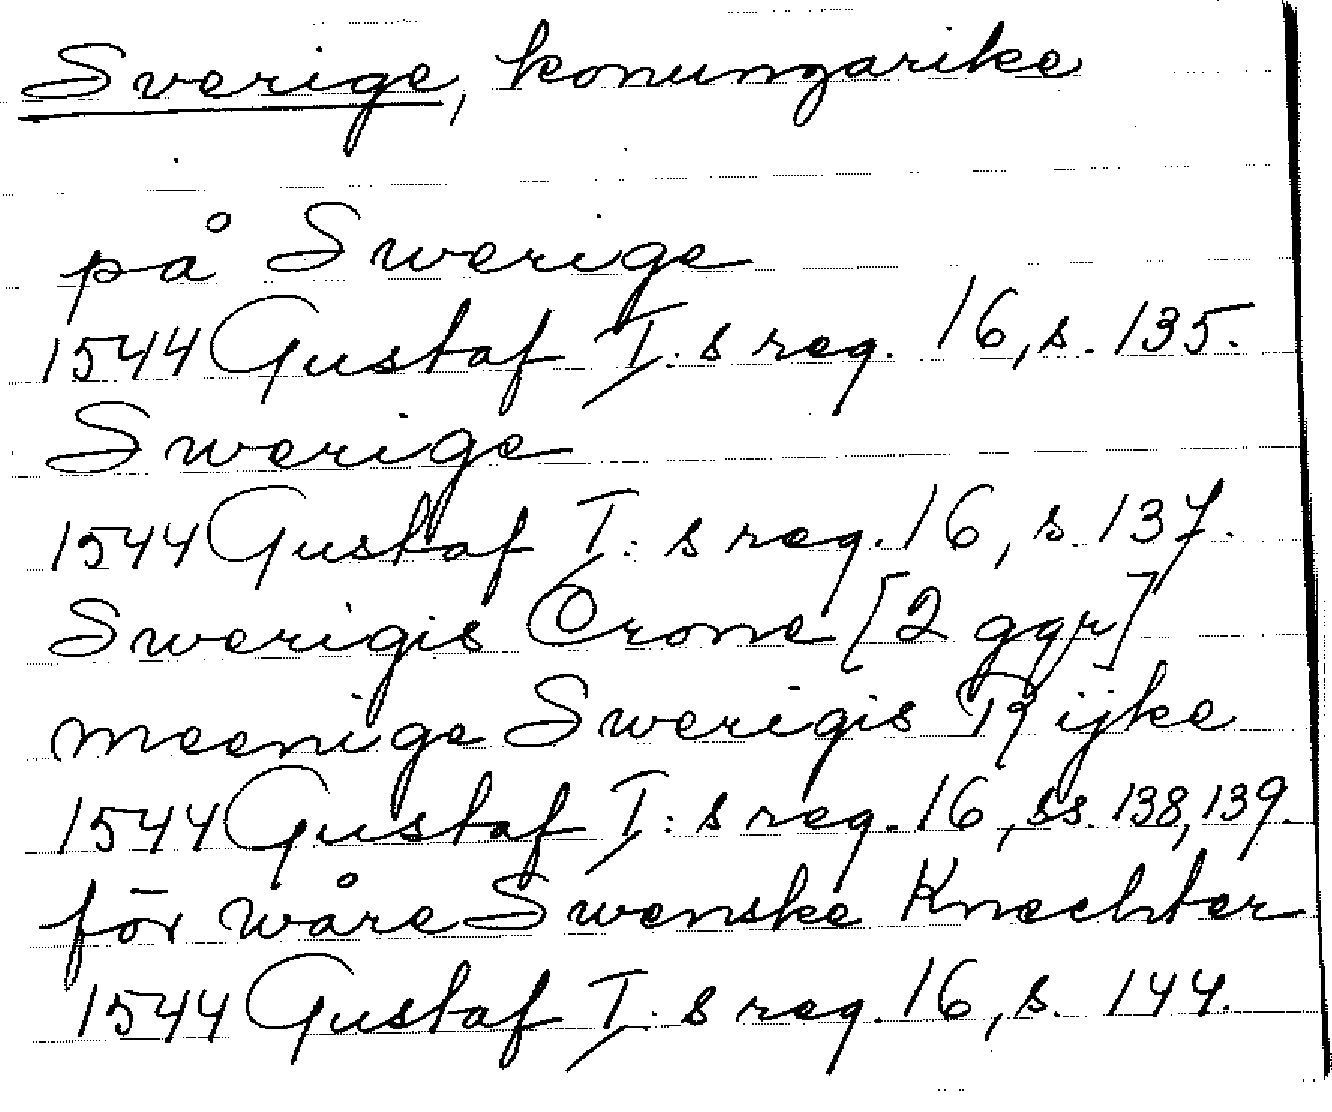 Sverige, konungarike
på Swerige
1544 Gustaf I:s reg. 16, s. 135.
Swerige
1544 Gustaf I:s reg. 16, s. 137.
Swerigis Crone [2 ggr]
meenige Swerigis Rijke
1544 Gustaf I:s reg. 16, ss. 138, 139.
för wåre Swenske Knechter
1544 Gustaf I:s reg. 16, s. 144.